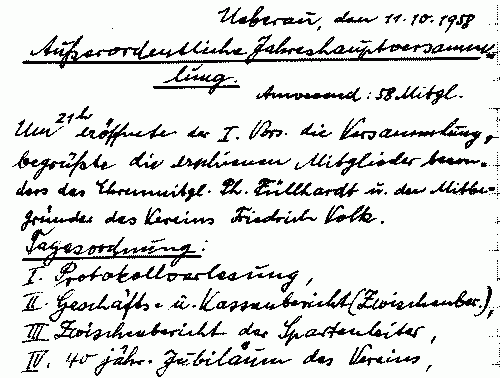 Ueberau, den 11.10.1958
Außerordentliche Jahreshauptversamm-
lung.
Anwesend: 58 Mitgl.
Um 21 hr eröffnete der I. Vors. die Versammlung,
begrüßte die erschienen Mitglieder beson-
ders das Ehrenmitgl. Ph. Füllhardt u. den Mitbe-
gründer des Vereins Friedrich Volk.
Tagesordnung:
I. Protokollverlesung,
II. Geschäfts- u. Kassenbericht (Zwischenber.),
III Zwischenbericht der Spartenleiter,
IV. 40 jähr. Jubiläum des Vereins,